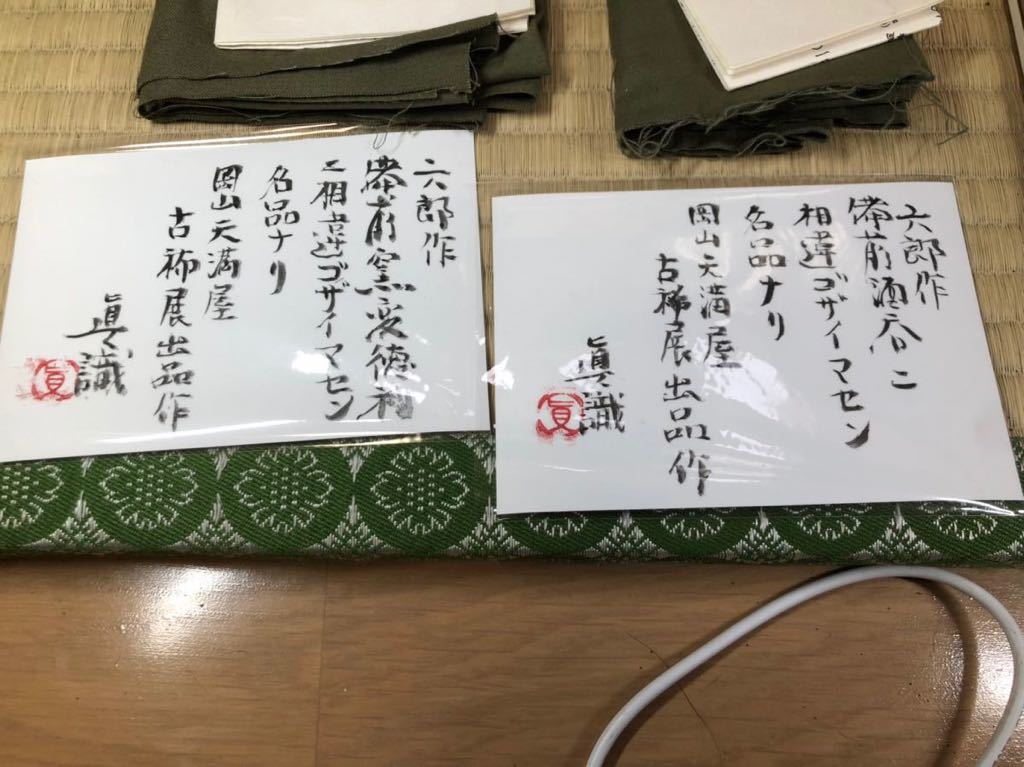 六郎作
備前窯変徳利
ニ相違ゴザイマセン
名品ナリ
岡山天満屋
古稀展出品作
眞識
眞
六郎作
備前酒呑ニ
相違ゴザイマセン
名品ナリ
岡山天満屋
古稀展出品作
眞識
眞